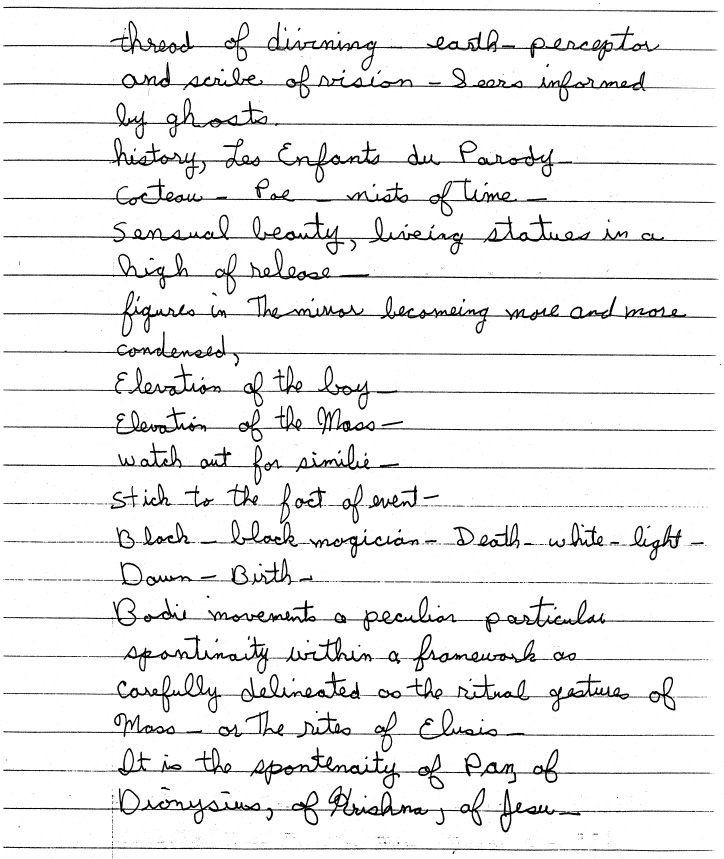 thread of divining – earth – perceptor
and scribe of vision – Seers informed
by ghosts.
history, Les Enfants du Parody –
Cocteau – Poe – mists of time –
Sensual beauty, liveing statues in a
high of release –
figures in The mirror becomeing more and more
condensed,
Elevation of the boy –
Elevation of the Mass –
watch out for similié –
stick to the fact of event –
Black – black magician – Death – white – light –
Dawn – Birth –
Bodie movements a peculiar particular
spontinaity within a framework as
carefully delineated as the ritual gestures of
Mass – or The rites of Elusis –
It is the spontenaity of Pan, of
Dionysius, of Krishna, of Jesu –